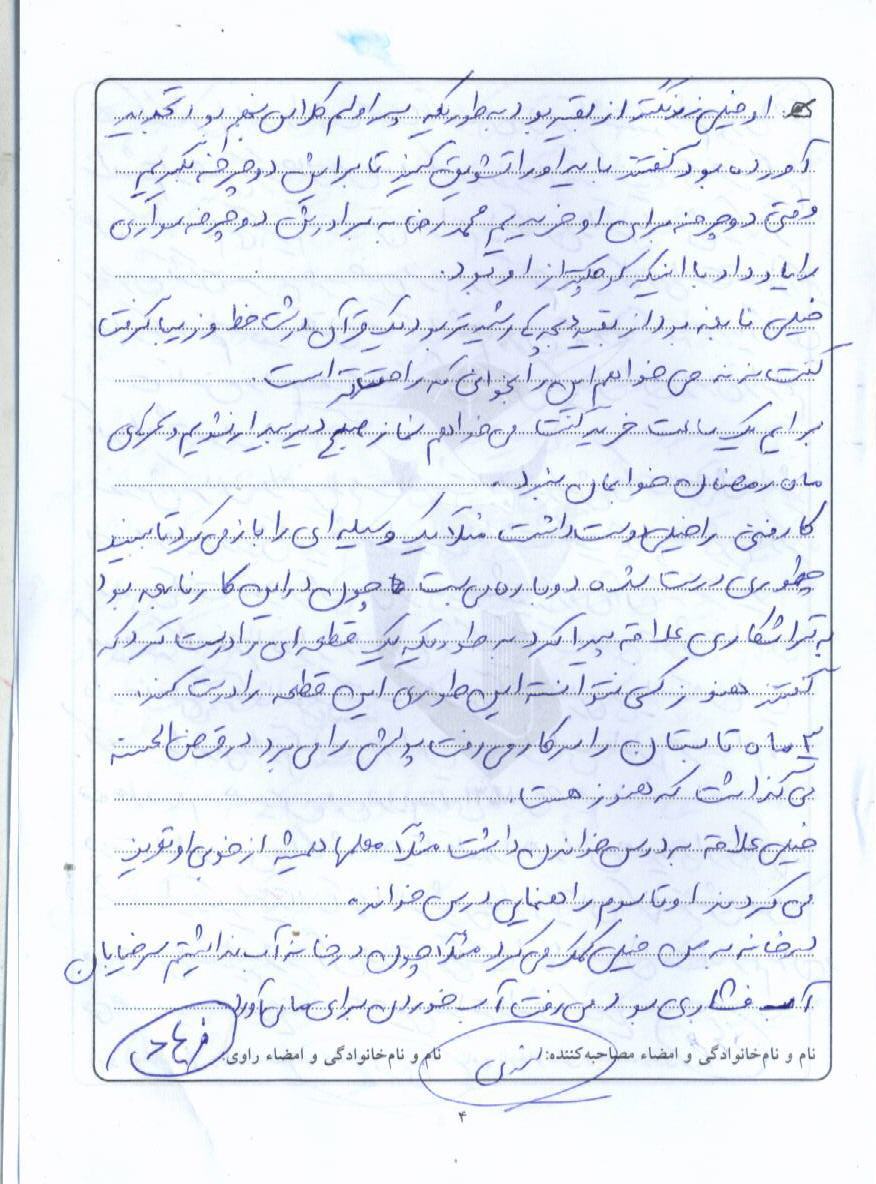 او خیلی زرنگتر از بقیه بود به طوریکه پسر اولم کلاس پنجم بود تجدید
آورده بود گفتند باید او را تشویق کنید تا برایش دوچرخه بگیریم
وقتی دوچرخه برای او خریدیم محمدرضا به برادرش دوچرخه سواری
را یاد داد با اینکه کوچکتر از او بود.
خیلی نابغه بود از بقیه بچه ها رشیدتر بود یک قرآن درشت خط و زیبا گرفت
گفت ننه می خواهم این را بخوانی که راحتتر است.
برایم یک ساعت خرید گفت می خواهم نماز صبح دیر بیدار نشویم و سحرهای
ماه رمضان خوابمان نبرد.
کار فنی را خیلی دوست داشت مثلاً یک وسیله ای را باز می کرد تا ببیند
چطوری درست شده دوباره می بست چون در این کار نابغه بود
به تراشکاری علاقه پیدا کرد به طوریکه یک قطعه ای را درست کرد که
گفتند هنوز کسی نتوانسته این طوری این قطعه را درست کند.
۳ ماه تابستان را سر کار می رفت پولش را می برد در قرض الحسنه
می گذاشت که هنوز هست.
خیلی علاقه به درس خواندن داشت مثلاً معلمها همیشه از خوبی او تعریف
می کردند او تا سوم راهنمایی درس خواند.
در خانه به من خیلی کمک می کرد مثلاً چون در خانه آب نداشتیم سر خیابان
آب فشاری بود می رفت آب خوردن برای ما می آورد
نام و نام‌خانوادگی و امضاء مصاحبه‌کننده: نام و نام‌خانوادگی و امضاء راوی:
۴